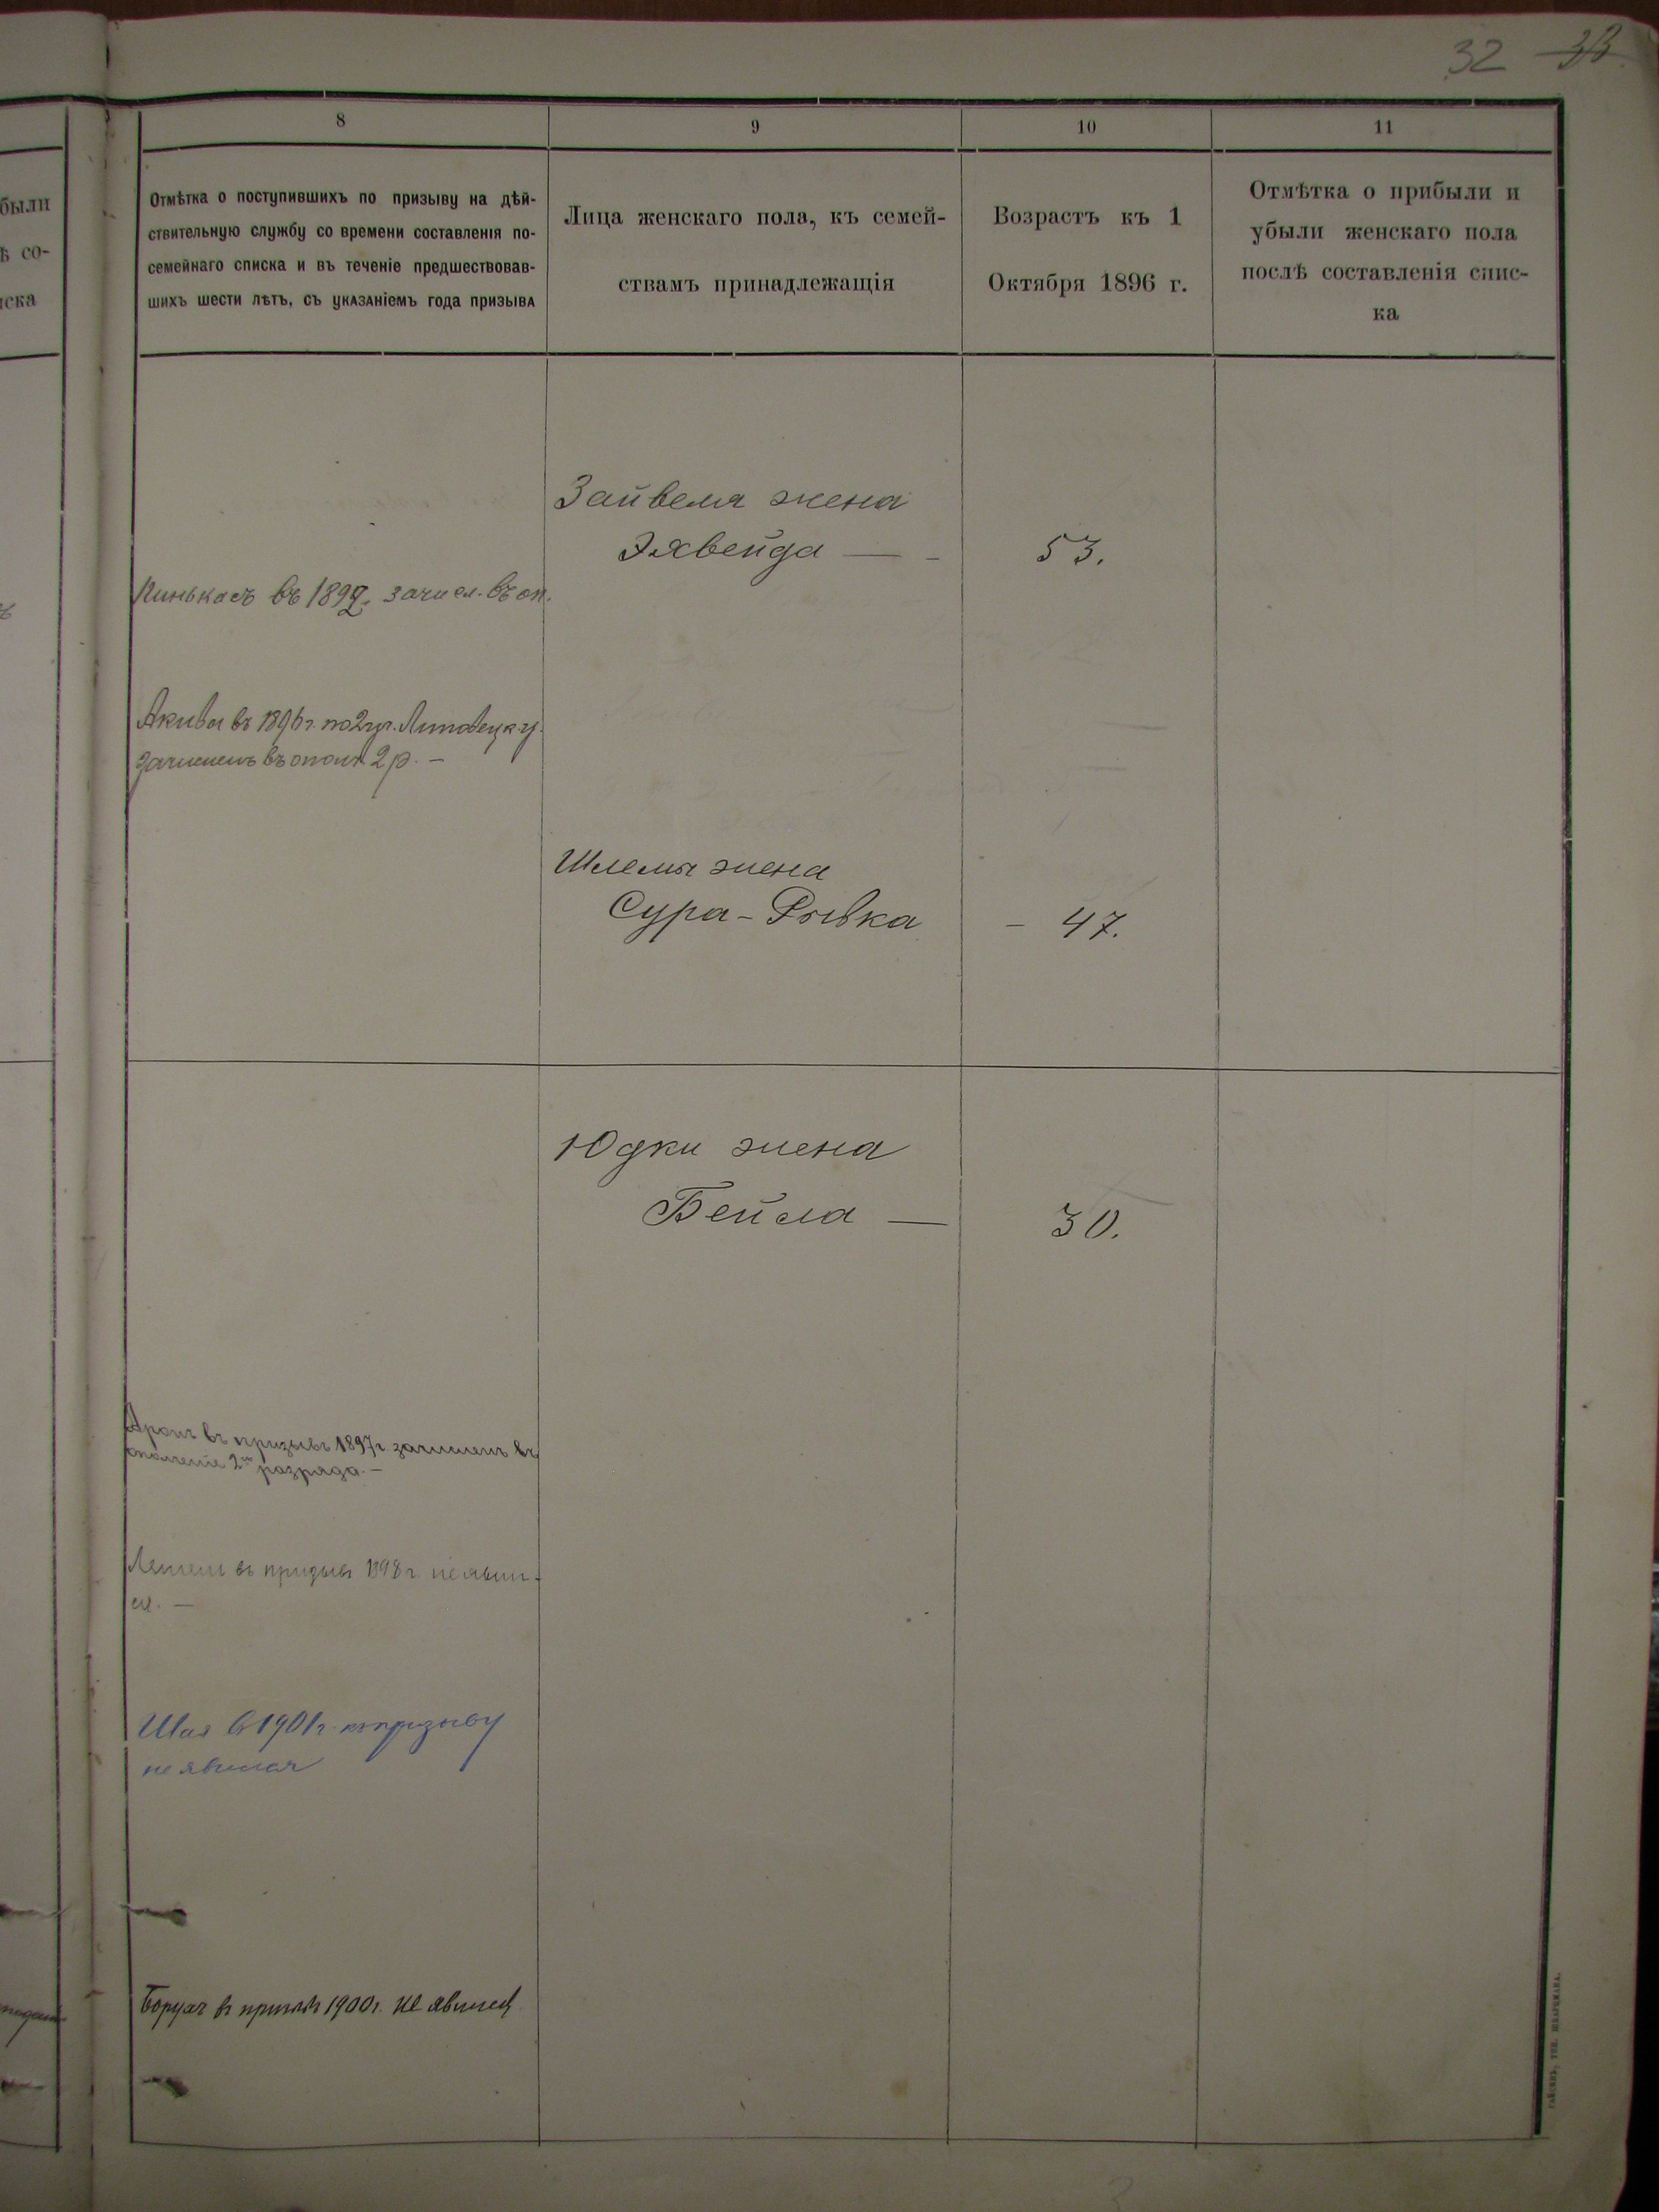 32 33
были
ѣ со-
иска
8
9
10
11
Отмѣтка о поступившихъ по призыву на дѣй-
ствительную службу со времени составленія по-
семейнаго списка и въ теченіе предшествовав-
шихъ шести лѣтъ, съ указаніемъ года призыва
Лица женскаго пола, къ семей-
ствамъ принадлежащія
Возрастъ къ 1
Октября 1896 г.
Отмѣтка о прибыли и
убыли женскаго пола
послѣ составленія спис-
ка
Зайвеля жена
Эльвейда — - 53.
Пинькасъ въ 1892 зачисл. въ оп.
Акива въ 1896 г. по 2 уч. Липовецк. у.
зачисленъ въ ополч 2 р. —
Шлемы жена
Сура-Рывка - 47.
Юдки жена
Бейла — 30.
Аронъ въ призывъ 1897 г. зачисленъ въ
ополченіе 2го разряда. —
въ призывъ 1898 г. не явил-
ся. —
Шая въ 1901 г. къ призыву
не явился
Борухъ въ 1900 г. не явился